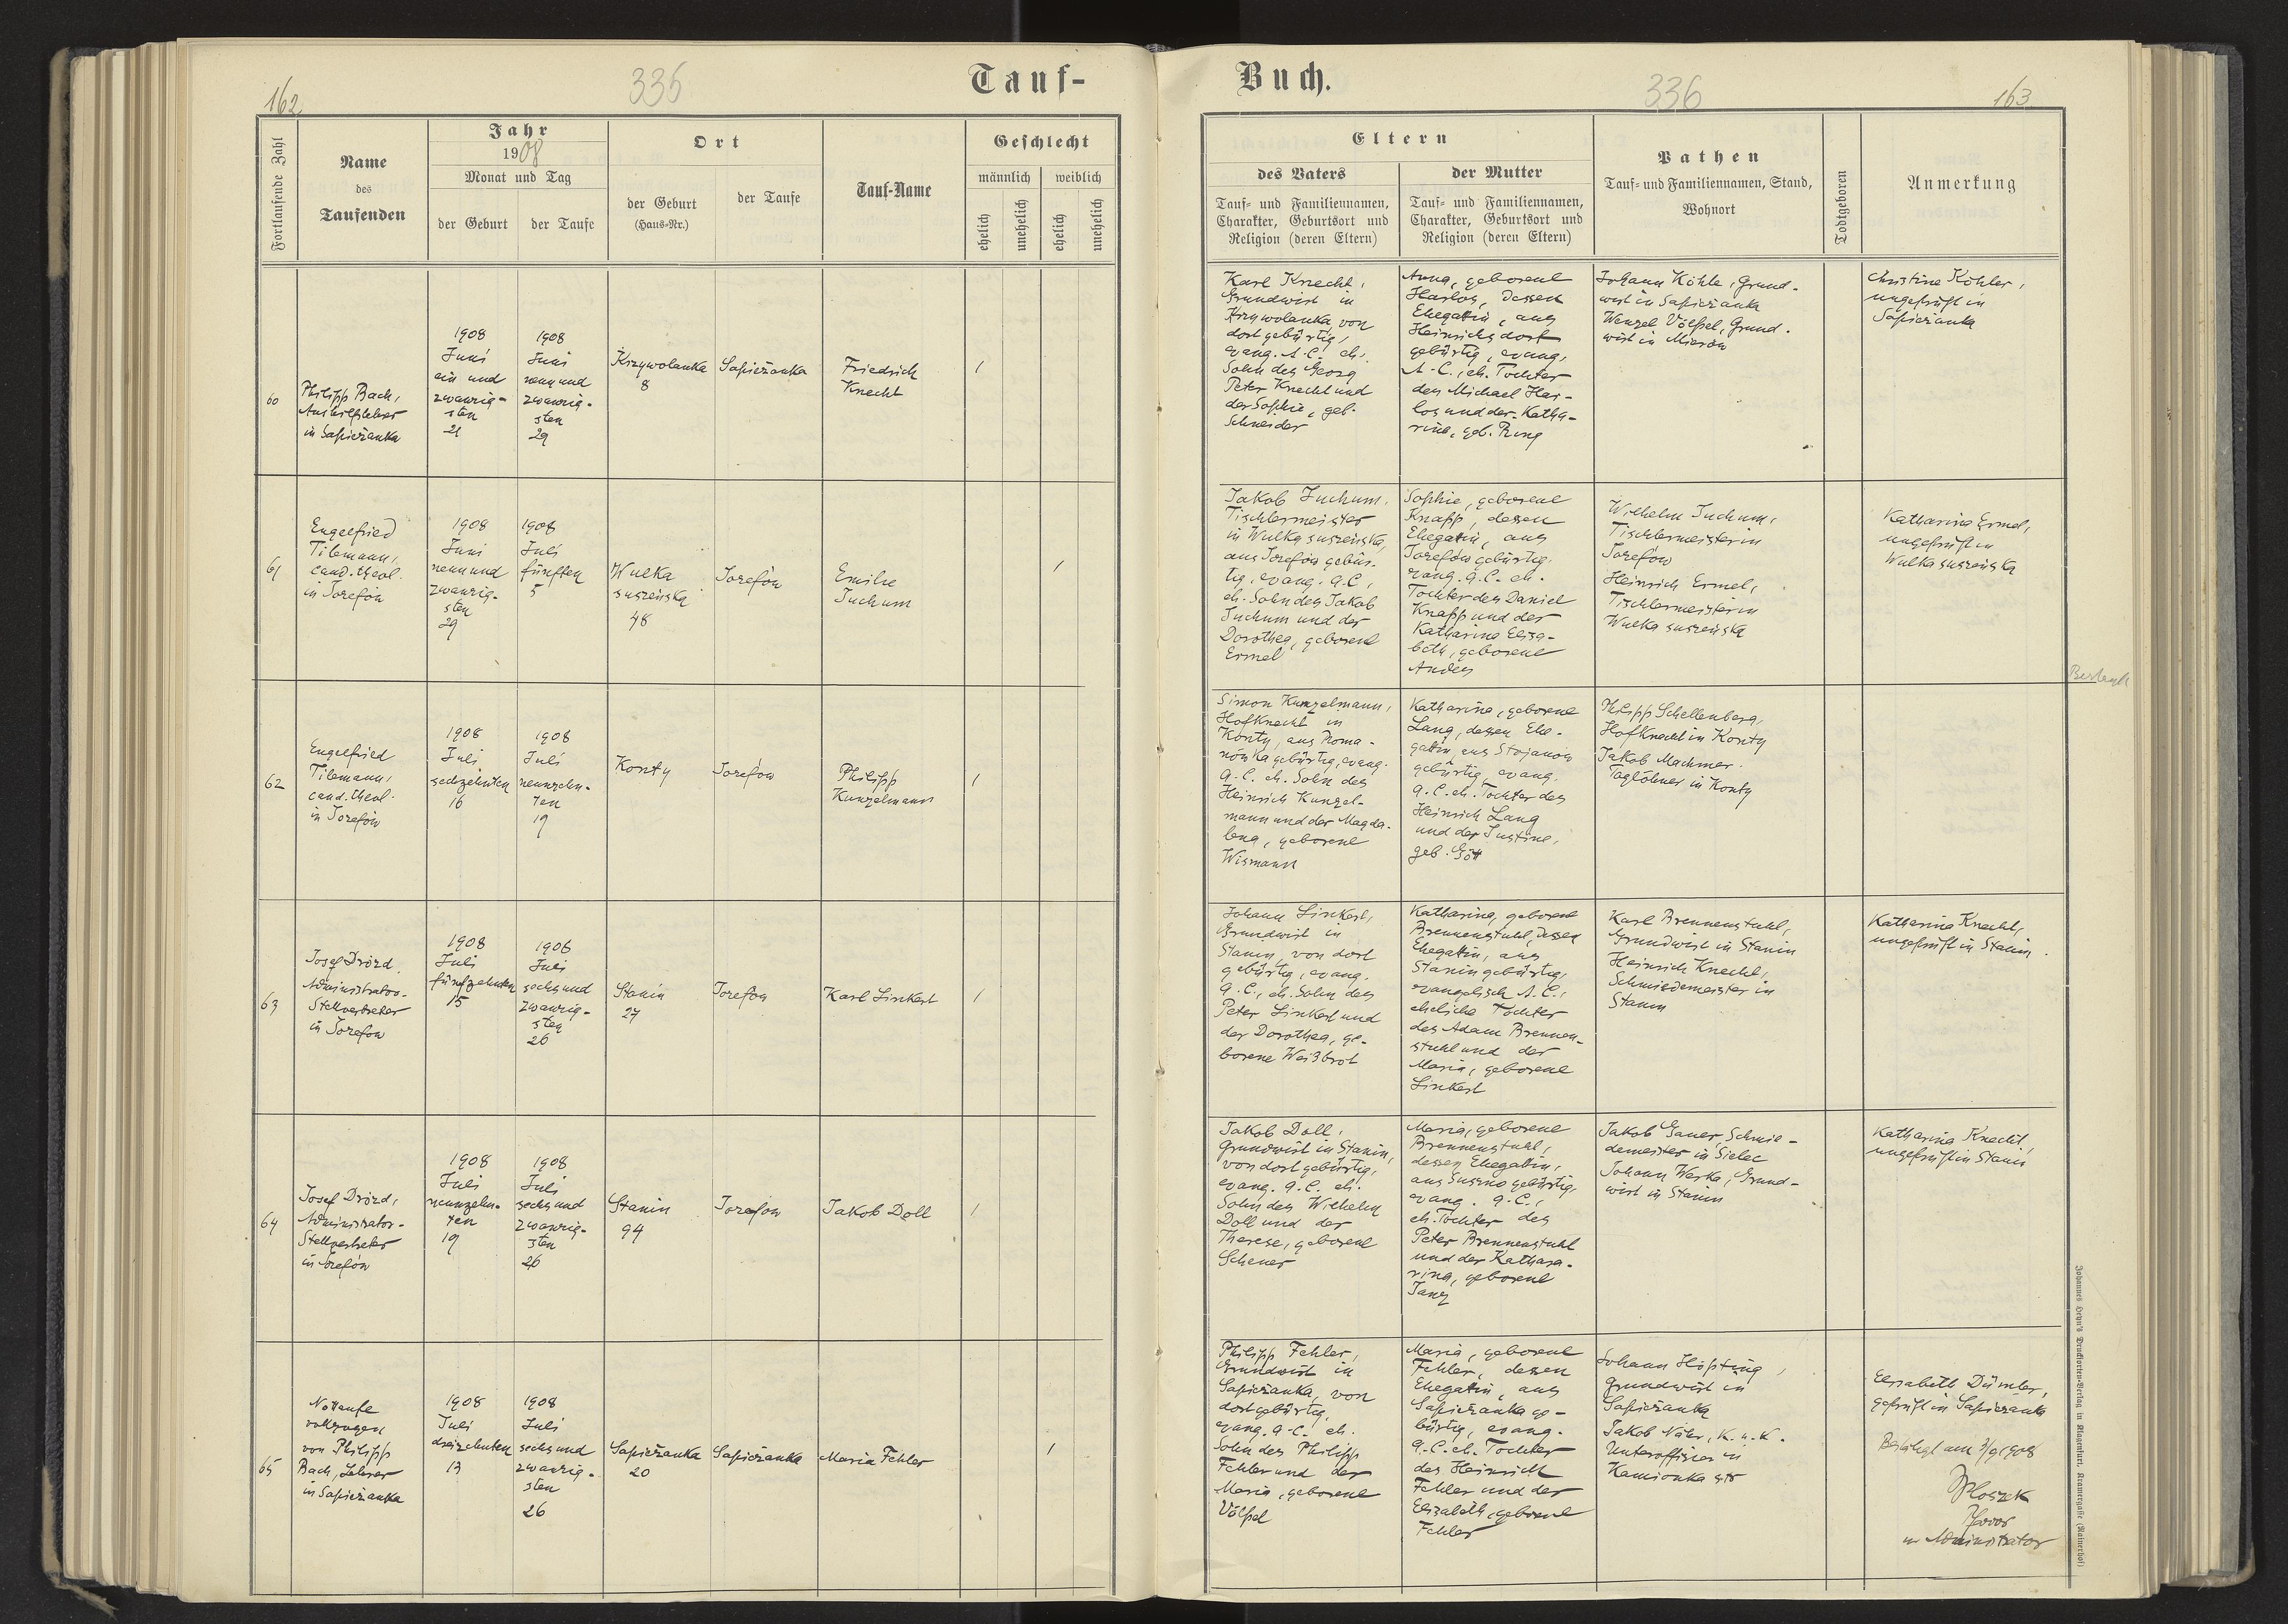 162
335
Tauf-
Fortlaufende Zahl
Name
des
Taufenden
Jahr
1908
Monat und Tag
der Geburt
der Taufe
Ort
der Geburt
(Haus-Nr.)
der Taufe
Tauf-Name
Geschlecht
männlich
weiblich
ehelich
unehelich
ehelich
unehelich
60
Philipp Bach,
Aushilfslehrer
in Sapieżanka
1908
Juni
ein und
zwanzig-
sten
21
1908
Juni
neun und
zwanzig-
sten
29
Krzywolanka
8
Sapieżanka
Friedrich
Knecht
1
61
Engelfried
Tilemann,
cand. theol.
in Josefów
1908
Juni
neun und
zwanzig-
sten
29
1908
Juli
fünften
5
Wulka
suszeńska
48
Josefów
Emilie
Juchum
1
62
Engelfried
Tilemann,
cand. theol.
in Josefów
1908
Juli
sechzehnten
16
1908
Juli
neunzehn-
ten
19
Konty
Josefow
Philipp
Kunzelmann
1
63
Josef Drózd,
Administrator-
Stellvertreter
in Josefow
1908
Juli
fünfzehnten
15
1908
Juli
sechs und
zwanzig-
sten
26
Stanin
27
Josefow
Karl Linkert
1
64
Josef Drózd,
Administrator-
Stellvertreter
in Josefów
1908
Juli
neunzehn-
ten
19
1908
Juli
sechs und
zwanzig-
sten
26
Stanin
94
Josefow
Jakob Doll
1
65
Nottaufe
vollzogen
von Philipp
Bach, Lehrer
in Sapieżanka
1908
Juli
dreizehnten
13
1908
Juli
sechs und
zwanzig-
sten
26
Sapieżanka
20
Sapieżanka
Maria Fehler
1
Buch.
336
163
Eltern
des Vaters
Tauf- und Familiennamen,
Charakter, Geburtsort und
Religion (deren Eltern)
der Mutter
Tauf- und Familiennamen,
Charakter, Geburtsort und
Religion (deren Eltern)
Pathen
Tauf- und Familiennamen, Stand,
Wohnort
Todtgeboren
Anmerkung
Karl Knecht,
Grundwirt in
Krzywolanka, von
dort gebürtig,
evang. A. C. eh.
Sohn des Georg
Peter Knecht und
der Sophie, geb.
Schneider
Anna, geborene
Harlos, dessen
Ehegattin, aus
Heinrichsdorf
gebürtig, evang.
A. C., eh. Tochter
des Michael Har-
los und der Katha-
rina, geb. Rung
Johann Köhle, Grund-
wirt in Sapieżanka
Wenzel Völpel, Grund-
wirt in Mierów
Christine Köhler,
ungeprüft in
Sapieżanka
Jakob Juchum,
Tischlermeister
in Wulka suszeńska,
aus Josefów gebür-
tig, evang. A. C.,
eh. Sohn des Jakob
Juchum und der
Dorothea, geborene
Ermel
Sophie, geborene
Knapp, dessen
Ehegattin, aus
Josefow gebürtig,
evang. A. C. eh.
Tochter des Daniel
Knapp und der
Katharina Elisa-
beth, geborene
Anders
Wilhelm Juchum,
Tischlermeister in
Josefów
Heinrich Ermel,
Tischlermeister in
Wulka suszeńska
Katharina Ermel,
ungeprüft in
Wulka suszeńska
Simon Kunzelmann,
Hofknecht in
Konty, aus Roma-
nówka gebürtig, evang.
A. C. eh. Sohn des
Heinrich Kunzel-
mann und der Magda-
lena, geborene
Wismann
Katharina, geborene
Lang, dessen Ehe-
gattin, aus Stojanow
gebürtig, evang.
A. C. eh. Tochter des
Heinrich Lang
und der Justine,
geb. Gött
Philipp Schellenberg,
Hofknecht in Konty
Jakob Machmer,
Taglöhner in Konty
Johann Linkert,
Grundwirt in
Stanin, von dort
gebürtig, evang.
A. C., eh. Sohn des
Peter Linkert und
der Dorothea, ge-
borene Weißbrot
Katharina, geborene
Brennenstuhl, dessen
Ehegattin, aus
Stanin gebürtig,
evangelisch A. C.,
eheliche Tochter
des Adam Brennen-
stuhl und der
Maria, geborene
Linkert
Karl Brennenstuhl,
Grundwirt in Stanin
Heinrich Knecht,
Schmiedemeister in
Stanin
Katharina Knecht,
ungeprüft in Stanin.
Jakob Doll,
Grundwirt in Stanin,
von dort gebürtig,
evang. A. C. eh.
Sohn des Wilhelm
Doll und der
Therese, geborene
Scheuer
Maria, geborene
Brennenstuhl,
dessen Ehegattin,
aus Suszno gebürtig,
evang. A. C.,
eh. Tochter des
Peter Brennenstuhl
und der Katha-
rina, geborene
Janz
Jakob Gauer, Schmie-
demeister in Sielec
Johann Warka, Grund-
wirt in Stanin
Katharina Knecht,
ungeprüft in Stanin
Philipp Fehler,
Grundwirt in
Sapieżanka, von
dort gebürtig,
evang. A. C. eh.
Sohn des Philipp
Fehler und der
Maria, geborene
Völpel
Maria, geborene
Fehler, dessen
Ehegattin, aus
Sapieżanka ge-
bürtig, evang.
A. C. eh. Tochter
des Heinrich
Fehler und der
Elisabeth, geborene
Fehler
Johann Höpfing,
Grundwirt in
Sapieżanka
Jakob Näher, K. u. K.
Unteroffizier in
Kamionka str
Elisabeth Dümler,
geprüft in Sapieżanka
Bestätigt am 3/9 1908
Ploszek
Pfarrer
Administrator
Johannes Heyn's Drucksorten-Verlag in Klagenfurt, Kramergasse (Rainerhof)